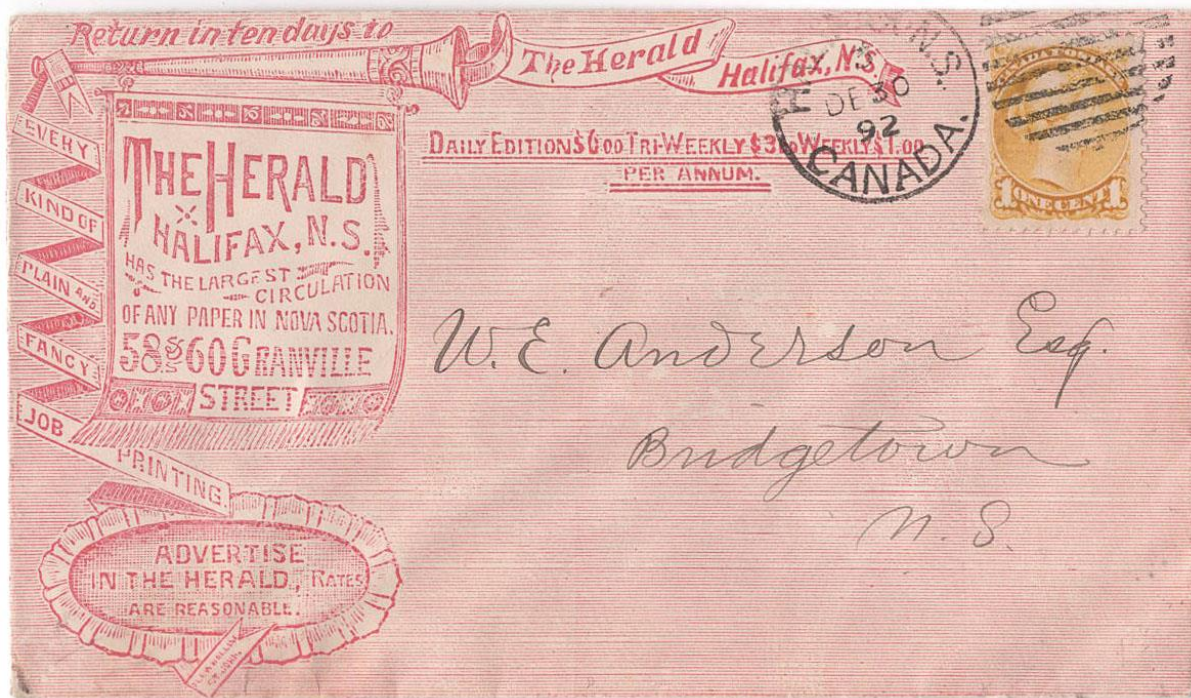 Return in ten days to
The Herald
Halifax, N.S.
DAILY EDITION $6.00 TRI-WEEKLY $3.00 WEEKLY $1.00
PER ANNUM.
N.S.
DE 30
92
CANADA.
1 ONE CENT 1
EVERY
KIND OF
PLAIN AND
FANCY
JOB
PRINTING
THE HERALD
HALIFAX, N.S.
HAS THE LARGEST
CIRCULATION
OF ANY PAPER IN NOVA SCOTIA.
58 & 60 GRANVILLE
STREET
W. E. Anderson Esq.
Bridgetown
N. S.
ADVERTISE
IN THE HERALD, RATES
ARE REASONABLE.